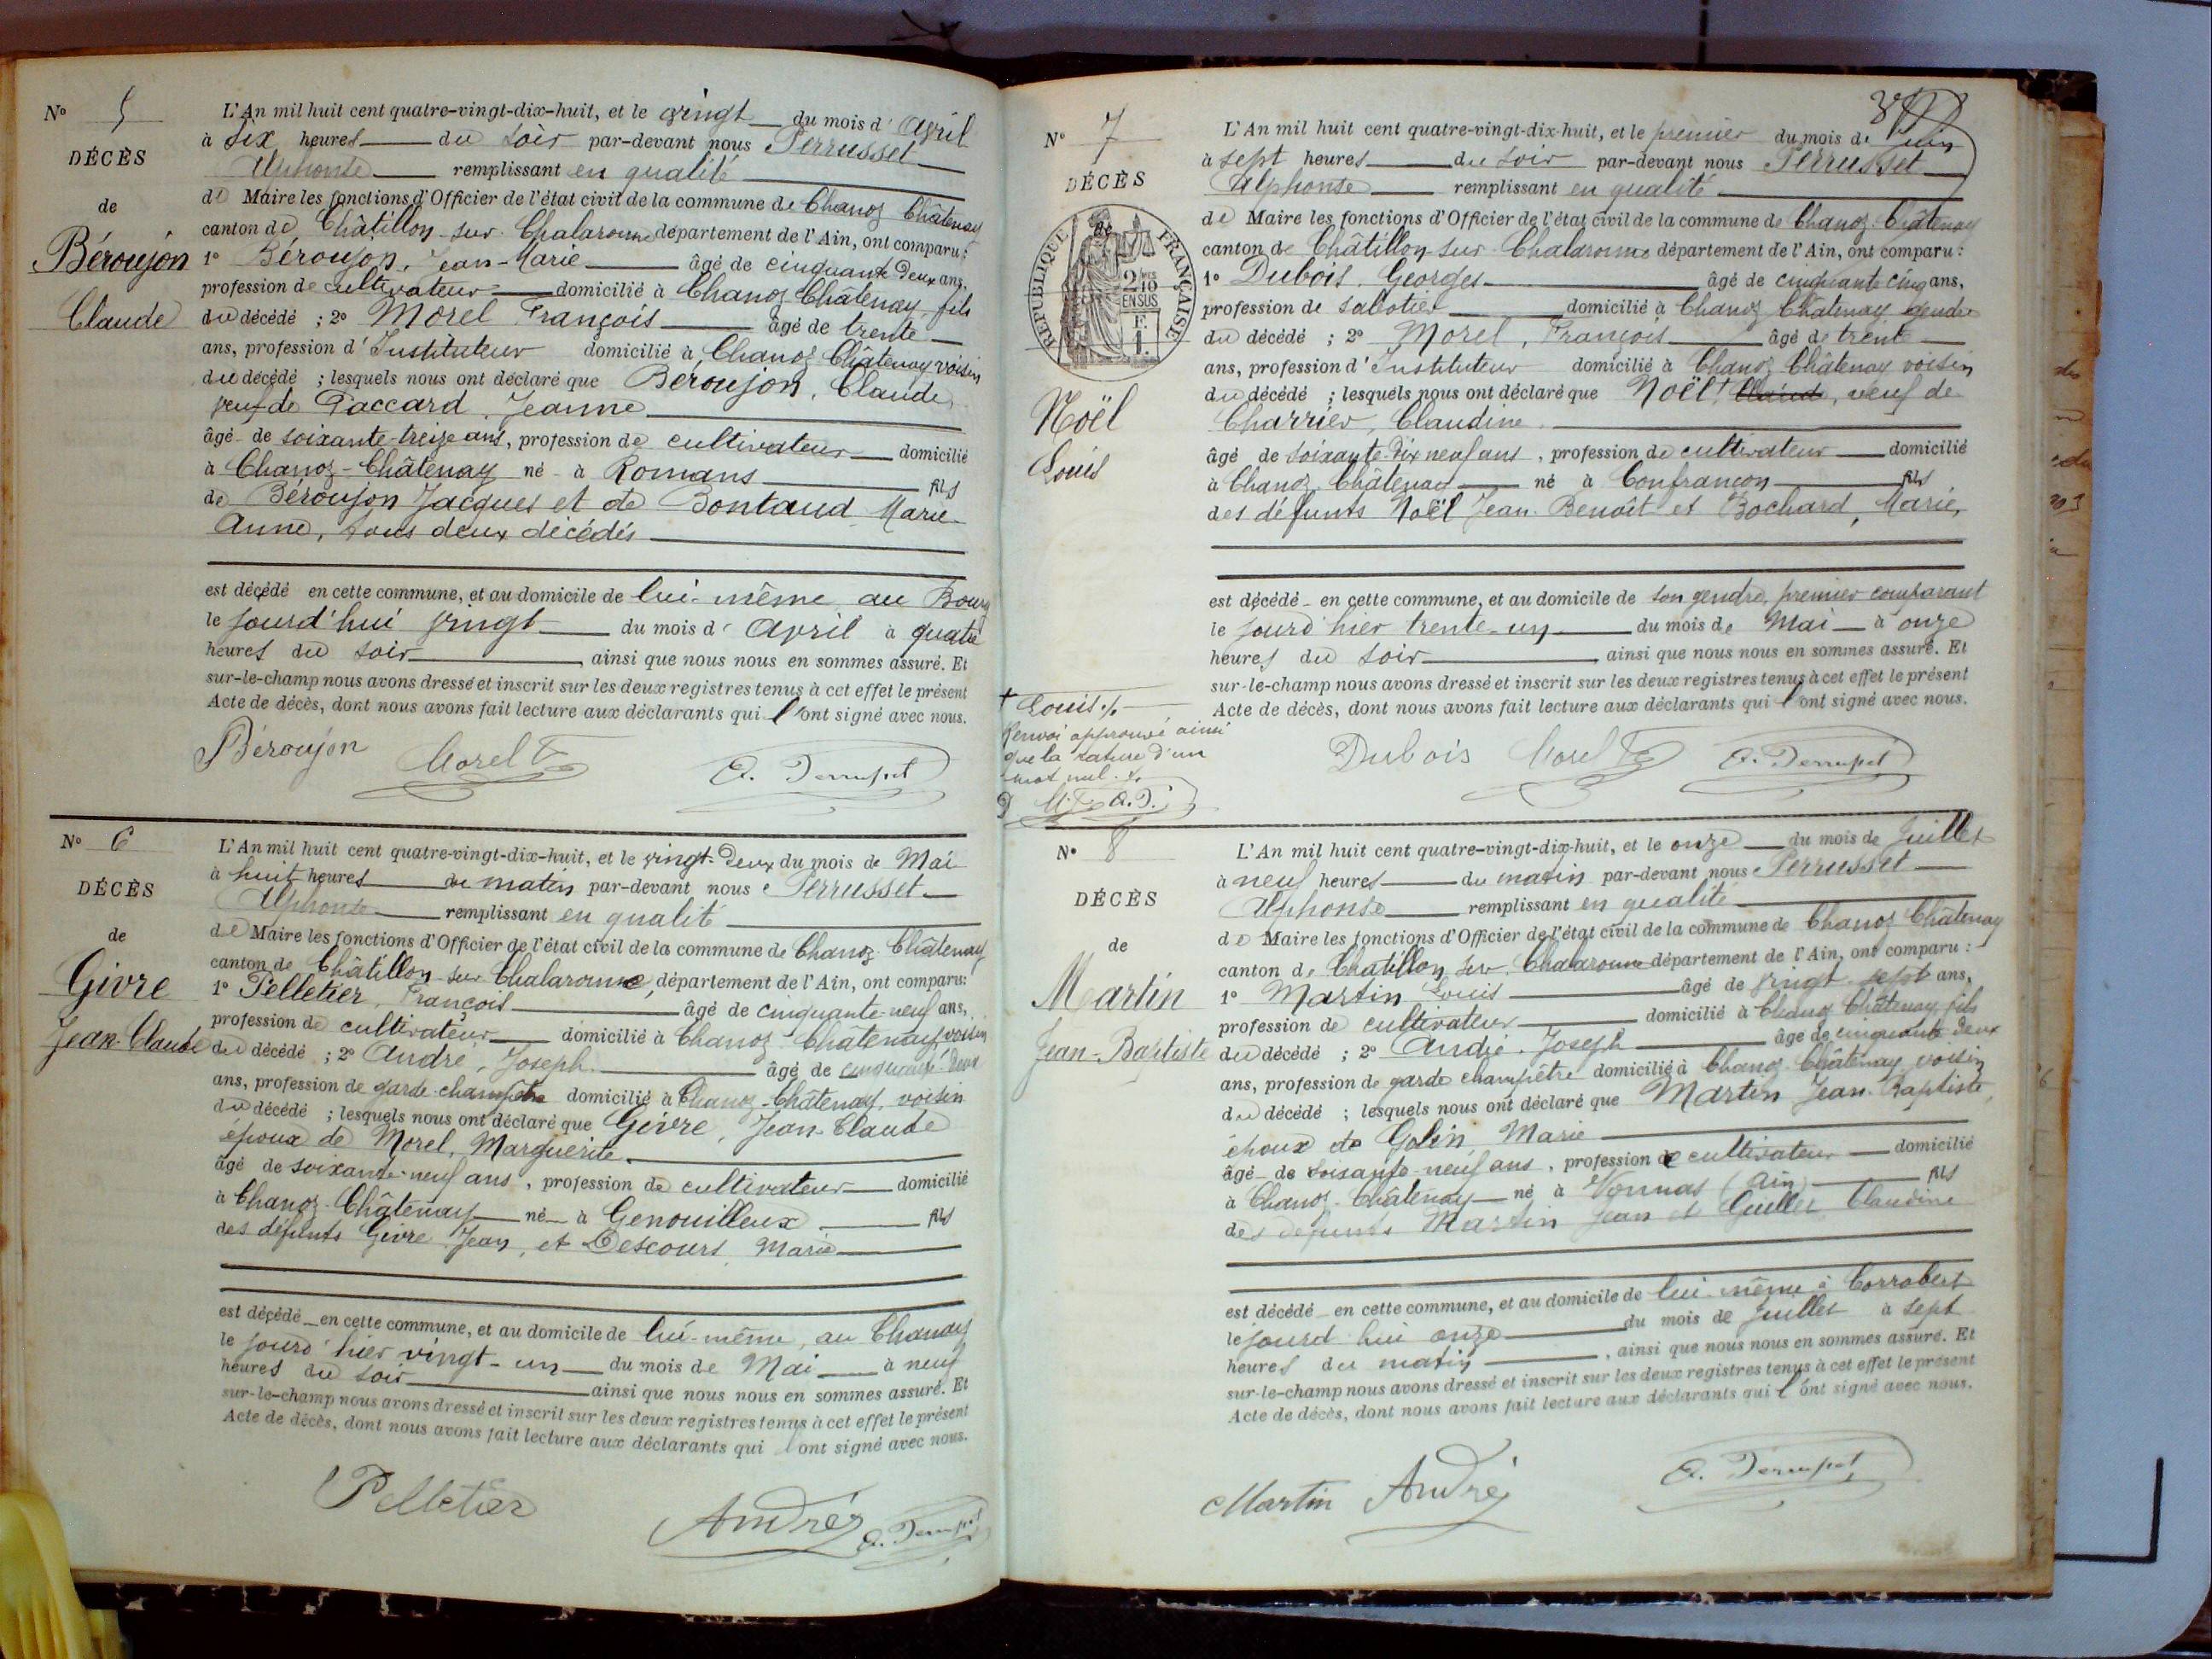 N° 5
DÉCÈS
de
Béroujon
Claude
L'An mil huit cent quatre-vingt-dix-huit, et le vingt du mois d'Avril
à six heures du soir par-devant nous Perrusset
Alphonse remplissant en qualité
de Maire les fonctions d'Officier de l'état civil de la commune de Chanoz Châtenay
canton de Châtillon-sur-Chalaronne département de l'Ain, ont comparu:
1° Béroujon, Jean-Marie âgé de cinquante deux ans,
profession de cultivateur domicilié à Chanoz Châtenay, fils
du décédé ; 2° Morel François âgé de trente
ans, profession d'Instituteur domicilié à Chanoz Châtenay voisin
du décédé ; lesquels nous ont déclaré que Béroujon, Claude,
veuf de Paccard, Jeanne
âgé de soixante-treize ans, profession de cultivateur domicilié
à Chanoz-Châtenay né à Romans fils
de Béroujon Jacques et de Bontaud Marie-
Anne, tous deux décédés
est décédé en cette commune, et au domicile de lui-même, au Bourg
le jourd'hui vingt du mois d'Avril à quatre
heures du soir, ainsi que nous nous en sommes assuré. Et
sur-le-champ nous avons dressé et inscrit sur les deux registres tenus à cet effet le présent
Acte de décès, dont nous avons fait lecture aux déclarants qui l'ont signé avec nous.
Béroujon Morel F A. Perrusset
N° 6
DÉCÈS
de
Givre
Jean-Claude
L'An mil huit cent quatre-vingt-dix-huit, et le vingt-deux du mois de Mai
à huit heures du matin par-devant nous Perrusset
Alphonse remplissant en qualité
de Maire les fonctions d'Officier de l'état civil de la commune de Chanoz Châtenay
canton de Châtillon-sur-Chalaronne, département de l'Ain, ont comparu:
1° Pelletier, François âgé de cinquante-neuf ans,
profession de cultivateur domicilié à Chanoz-Châtenay, voisin
du décédé ; 2° André, Joseph âgé de cinquante-deux
ans, profession de garde-champêtre domicilié à Chanoz-Châtenay, voisin
du décédé ; lesquels nous ont déclaré que Givre, Jean-Claude
époux de Morel, Marguerite
âgé de soixante-neuf ans, profession de cultivateur domicilié
à Chanoz-Châtenay né à Genouilleux fils
des défunts Givre Jean, et Descours Marie
est décédé en cette commune, et au domicile de lui-même, au Chanay
le jourd'hier vingt-un du mois de Mai à neuf
heures du soir ainsi que nous nous en sommes assuré. Et
sur-le-champ nous avons dressé et inscrit sur les deux registres tenus à cet effet le présent
Acte de décès, dont nous avons fait lecture aux déclarants qui l'ont signé avec nous.
Pelletier André A. Perrusset
N° 7
DÉCÈS
RÉPUBLIQUE FRANÇAISE
2/10 EN SUS
Noël
Louis
L'An mil huit cent quatre-vingt-dix-huit, et le premier du mois de Juin
à sept heures du soir par-devant nous Perrusset
Alphonse remplissant en qualité
de Maire les fonctions d'Officier de l'état civil de la commune de Chanoz-Châtenay
canton de Châtillon-sur-Chalaronne département de l'Ain, ont comparu:
1° Dubois, Georges âgé de cinquante cinq ans,
profession de sabotier domicilié à Chanoz Châtenay gendre
du décédé ; 2° Morel, François âgé de trente
ans, profession d'Instituteur domicilié à Chanoz Châtenay voisin
du décédé ; lesquels nous ont déclaré que Noël + Claude, veuf de
Charrier, Claudine
âgé de soixante-dix neuf ans, profession de cultivateur domicilié
à Chanoz Châtenay né à Confrançon fils
des défunts Noël Jean Benoît et Bochard, Marie,
est décédé en cette commune, et au domicile de son gendre, premier comparant
le jourd'hier trente-un du mois de Mai à onze
heures du soir ainsi que nous nous en sommes assuré. Et
sur-le-champ nous avons dressé et inscrit sur les deux registres tenus à cet effet le présent
Acte de décès, dont nous avons fait lecture aux déclarants qui l'ont signé avec nous.
+ Louis
Renvoi approuvé ainsi
que la rature d'un
mot nul.
D M.F. A.P.
Dubois Morel F A. Perrusset
N° 8
DÉCÈS
de
Martin
Jean-Baptiste
L'An mil huit cent quatre-vingt-dix-huit, et le onze du mois de Juillet
à neuf heures du matin par-devant nous Perrusset
Alphonse remplissant en qualité
de Maire les fonctions d'Officier de l'état civil de la commune de Chanoz Châtenay
canton de Chatillon sur Chalaronne département de l'Ain, ont comparu:
1° Martin Louis âgé de vingt sept ans,
profession de cultivateur domicilié à Chanoz Châtenay fils
du décédé ; 2° André, Joseph âgé de cinquante deux
ans, profession de garde champêtre domicilié à Chanoz-Châtenay voisin
du décédé ; lesquels nous ont déclaré que Martin Jean-Baptiste,
époux de Golin Marie
âgé de soixante-neuf ans, profession de cultivateur domicilié
à Chanoz-Châtenay né à Vonnas (Ain) fils
des défunts Martin Jean et Guillet Claudine
est décédé en cette commune, et au domicile de lui-même à Corrobert
le jourd'hui onze du mois de Juillet à sept
heures du matin, ainsi que nous nous en sommes assuré. Et
sur-le-champ nous avons dressé et inscrit sur les deux registres tenus à cet effet le présent
Acte de décès, dont nous avons fait lecture aux déclarants qui l'ont signé avec nous.
Martin André A. Perrusset